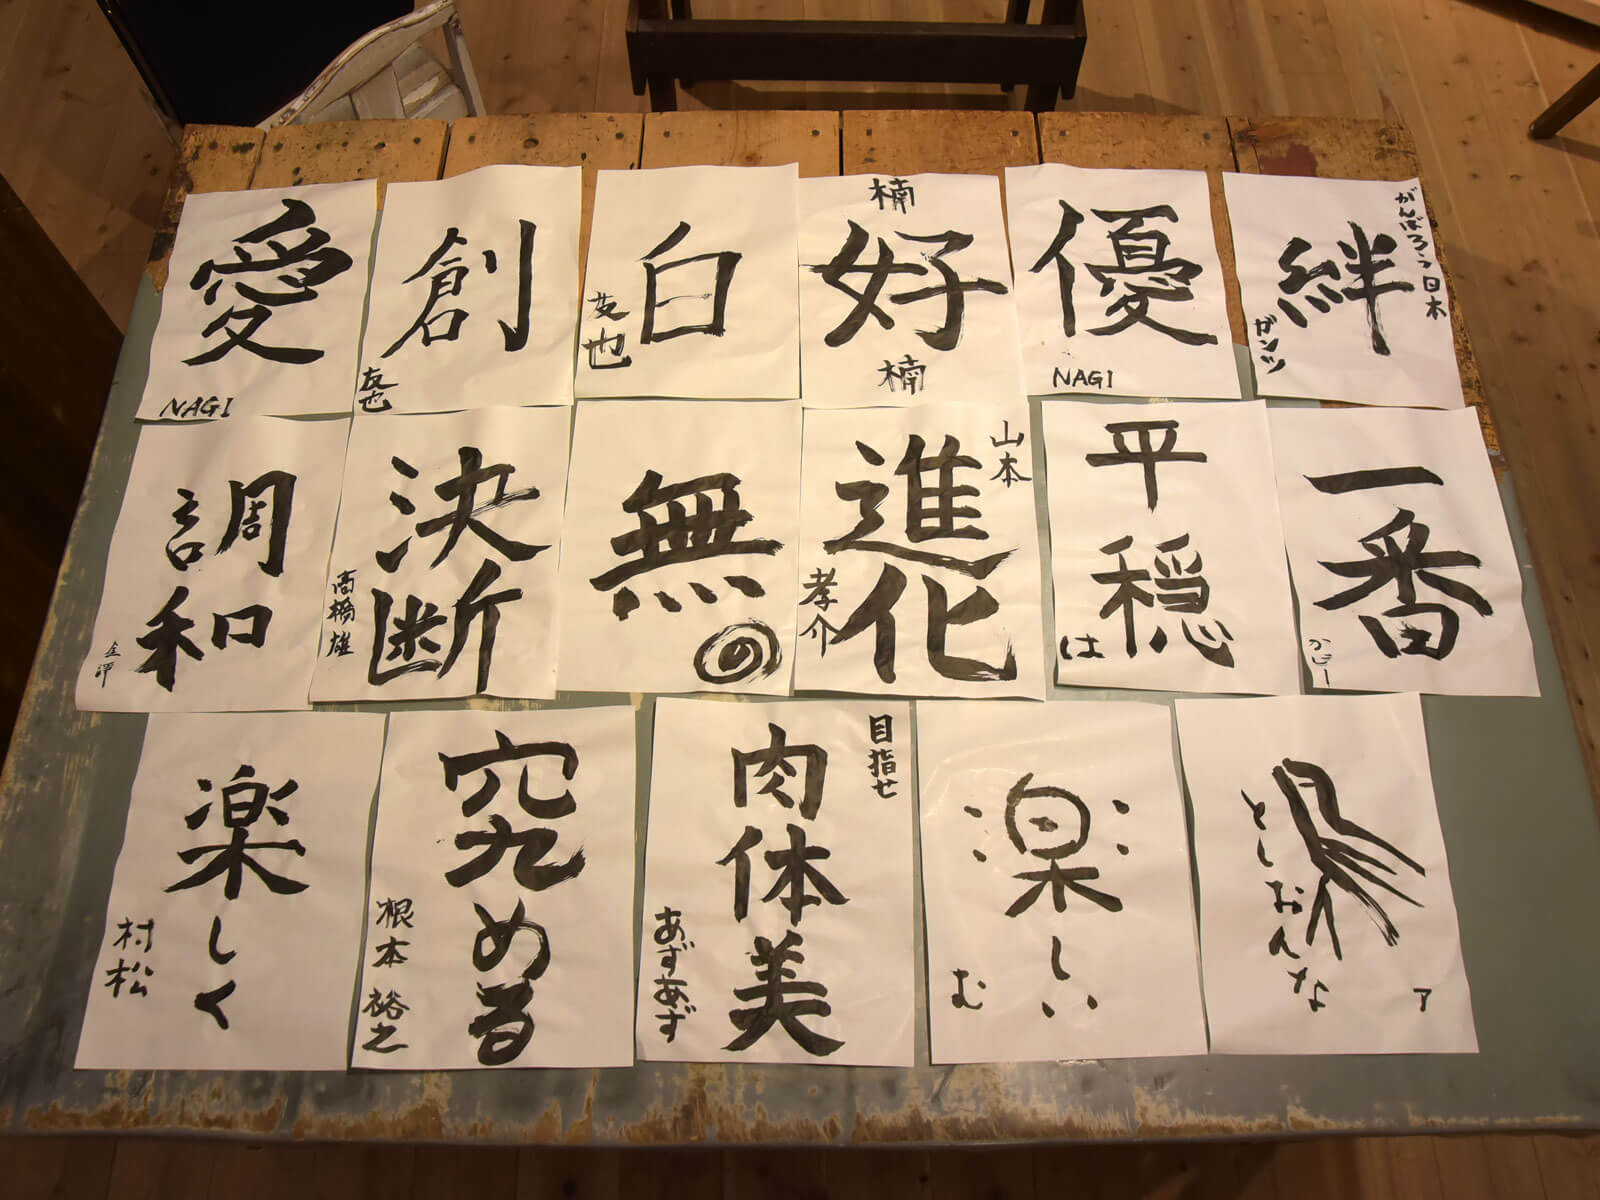 愛
NAGI
創
友也
白
友也
楠
好
楠
優
NAGI
がんばろう日本
絆
ガンツ
調和
決断
高橋 雄
無
の
山本
進化
孝介
平穏
は
一番
楽しく
村松
究める
根本 裕之
目指せ
肉体美
あずあず
楽しい
む
としおんな
ア